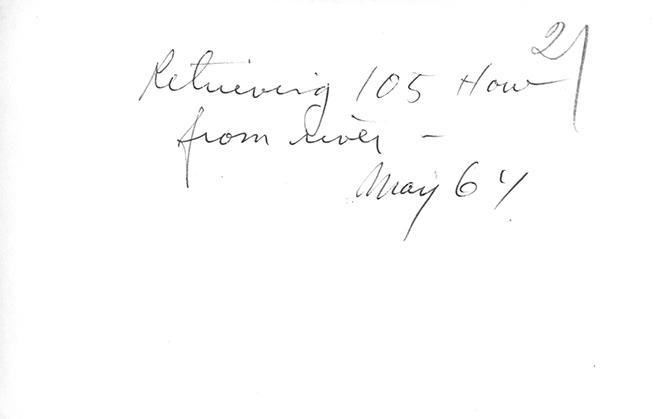 21
Retrieving 105 How
from river –
May 64